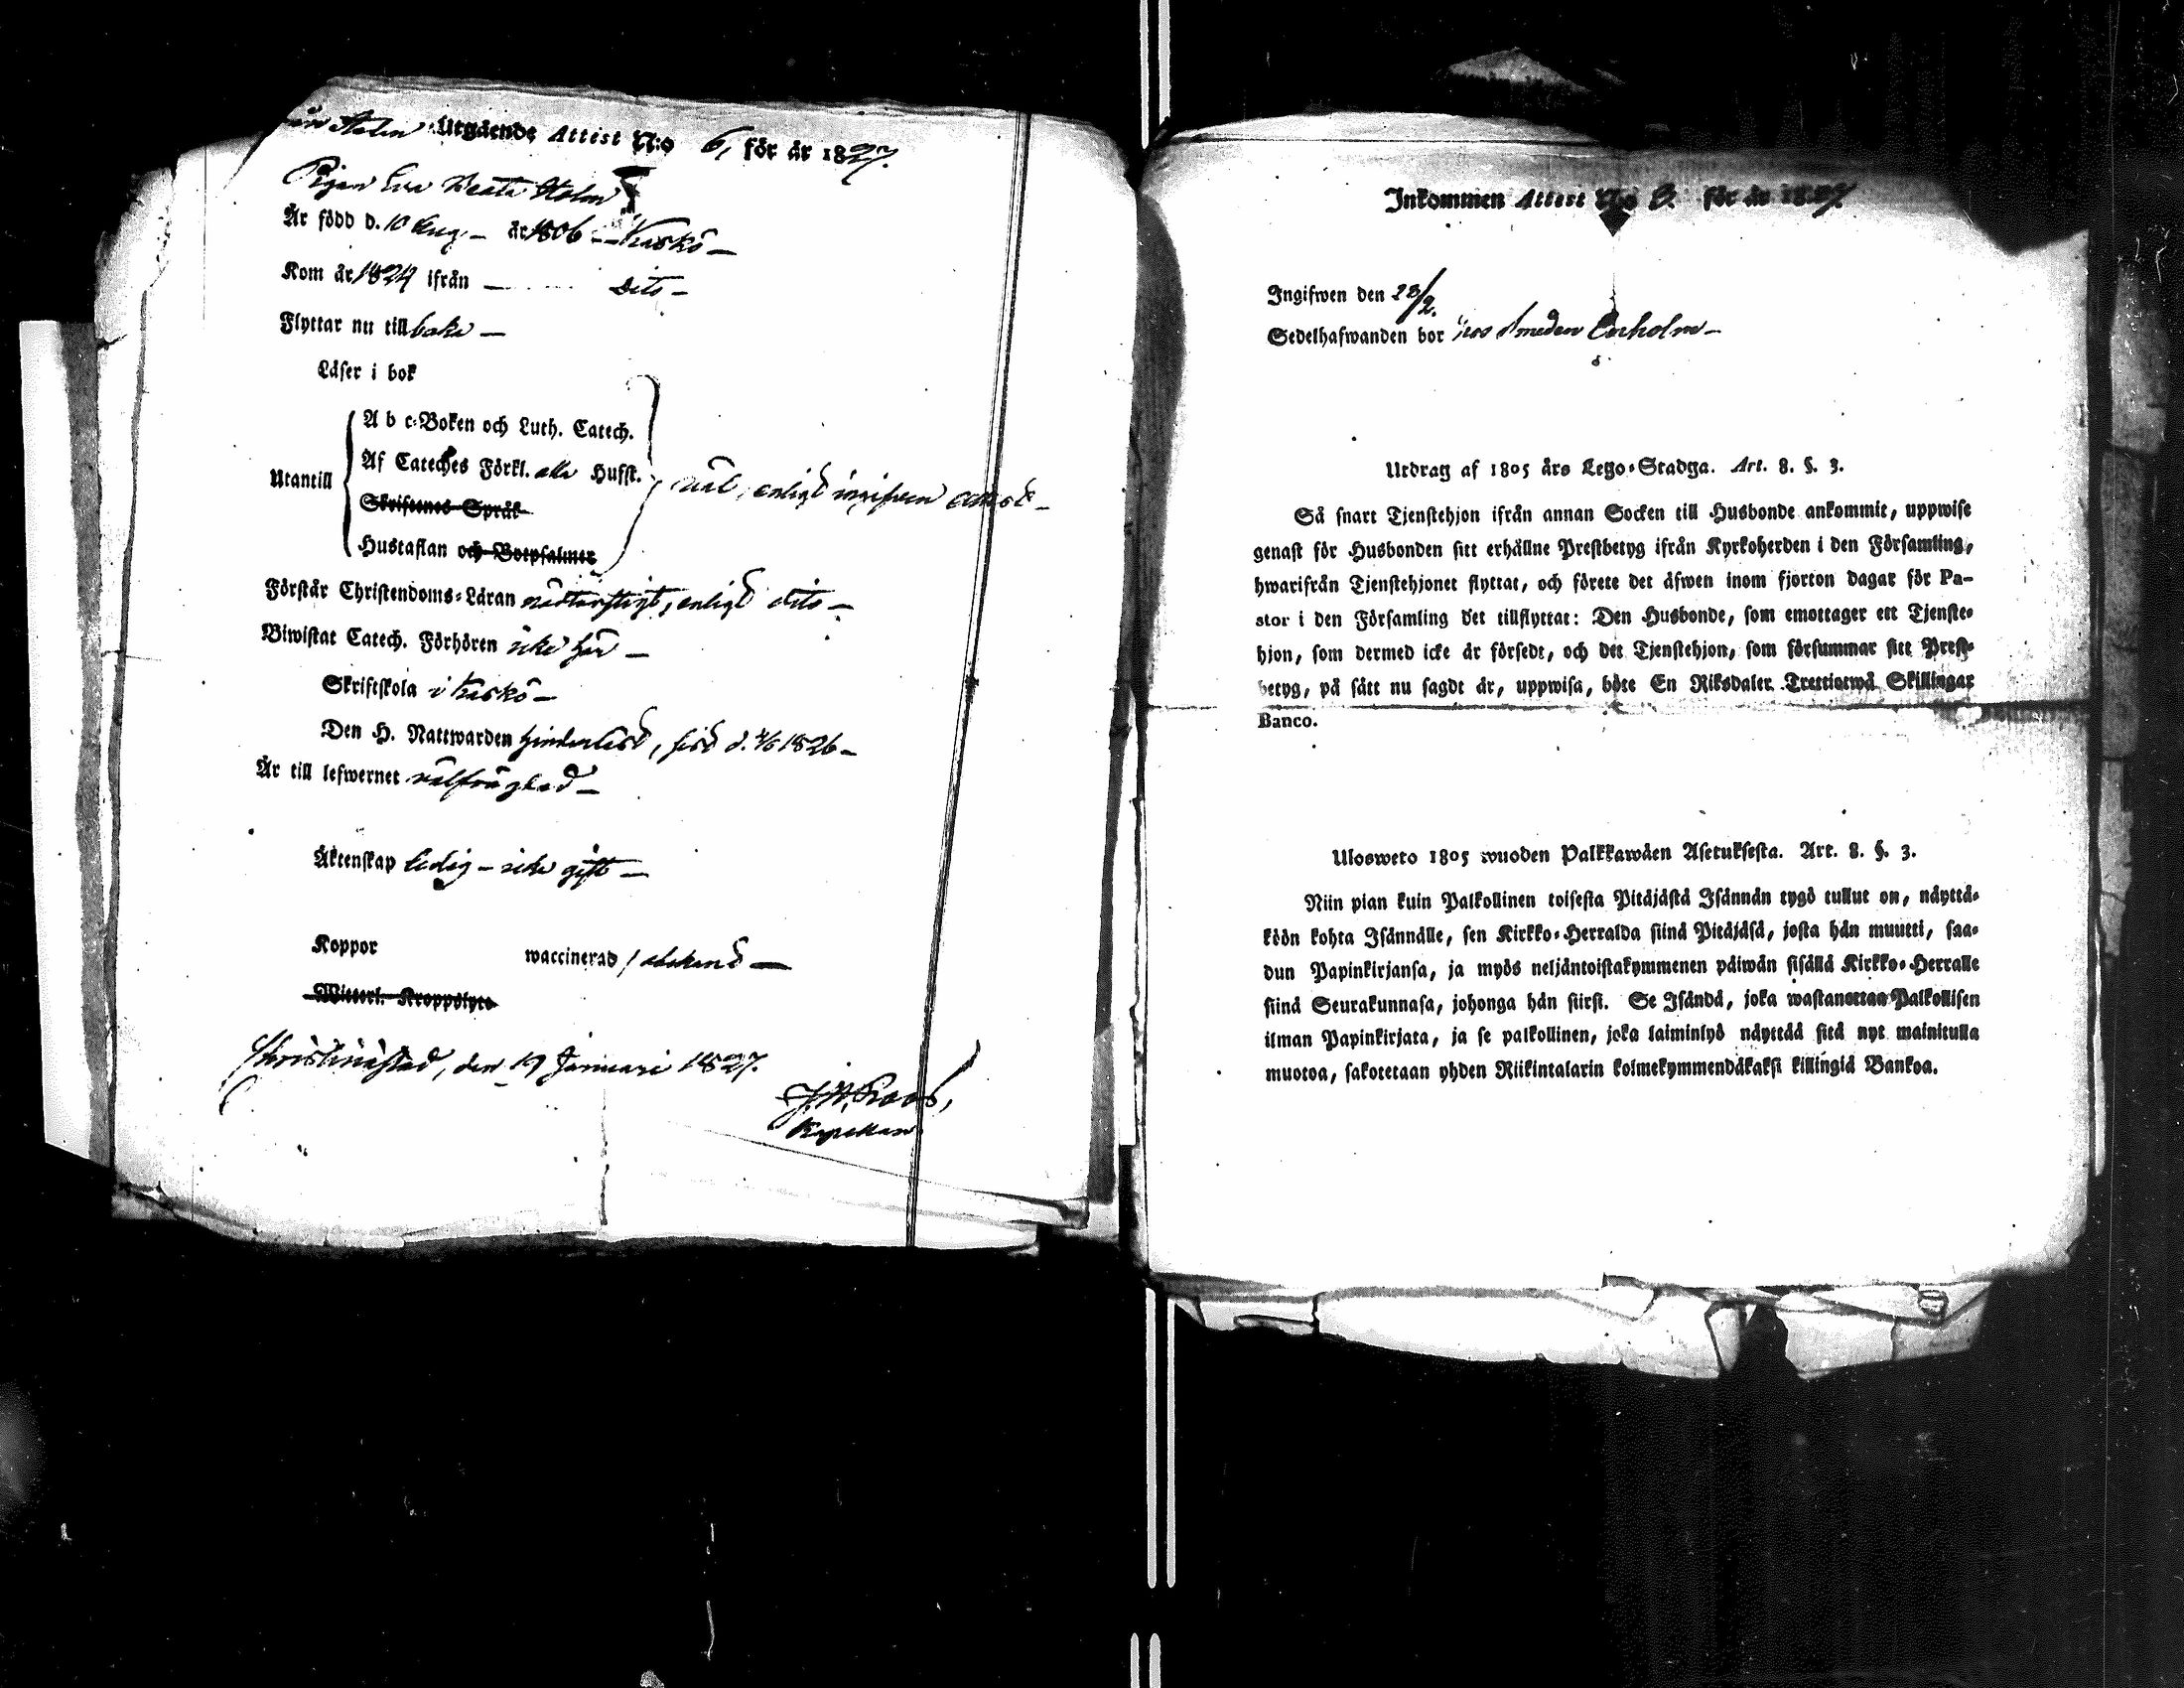 Holm Utgående Attest N:o 6, för år 1827.
Pigan Eva Beata Holm
Är född d. 10 Aug – år 1806 – Kaskö –
Kom år 1824 ifrån – dito –
Flyttar nu tillbaka –
Läser i bok
A b c-Boken och Luth. Catech.
Af Cateches Förkl. alla Hufst.
Utantill väl, enligt ingifven attest –
Skriftenes Språk
Hustaflan och Botpsalmer
Förstår Christendoms-Läran nödtorftigt, enligt dito –
Biwistat Catech. Förhören icke här –
Skriftskola i Kaskö –
Den H. Nattwarden hinderlöst, sist d. 4/6 1826 –
Är till lefwernet välfrägdad –
Äktenskap ledig – icke gift –
Koppor waccinerad /
Witterl. Kroppslyte
Christinestad, den 19 Januari 1827.
J. W. Roos,
Kapellan
Inkommen Attest N:o 3. för år 1827
Ingifwen den 28/2.
Sedelhafwanden bor hos Smeden Enholm –
Utdrag af 1805 års Lego-Stadga. Art. 8. §. 3.
Så snart Tjenstehjon ifrån annan Socken till Husbonde ankommit, uppwise
genast för Husbonden sitt erhållne Prestbetyg ifrån Kyrkoherden i den Församling,
hwarifrån Tjenstehjonet flyttat, och förete det äfwen inom fjorton dagar för Pa-
stor i den Församling det tillflyttat: Den Husbonde, som emottager ett Tjenste-
hjon, som dermed icke är försedt, och det Tjenstehjon, som försummar sitt Prest-
betyg, på sätt nu sagdt är, uppwisa, böte En Riksdaler Trettiotwå Skillingar
Banco.
Ulosweto 1805 wuoden Palkkawäen Asetuksesta. Art. 8. §. 3.
Niin pian kuin Palkollinen toisesta Pitäjästä Isännän tygö tullut on, näyttä-
köön kohta Isännälle, sen Kirkko-Herralda siinä Pitäjäsä, josta hän muutti, saa-
dun Papinkirjansa, ja myös neljäntoistakymmenen päiwän sisällä Kirkko-Herralle
siinä Seurakunnasa, johonga hän siirsi. Se Isändä, joka wastanottaa Palkollisen
ilman Papinkirjata, ja se palkollinen, joka laiminlyö näyttää sitä nyt mainitulla
muotoa, sakotetaan yhden Riikintalarin kolmekymmendäkaksi killingiä Bankoa.